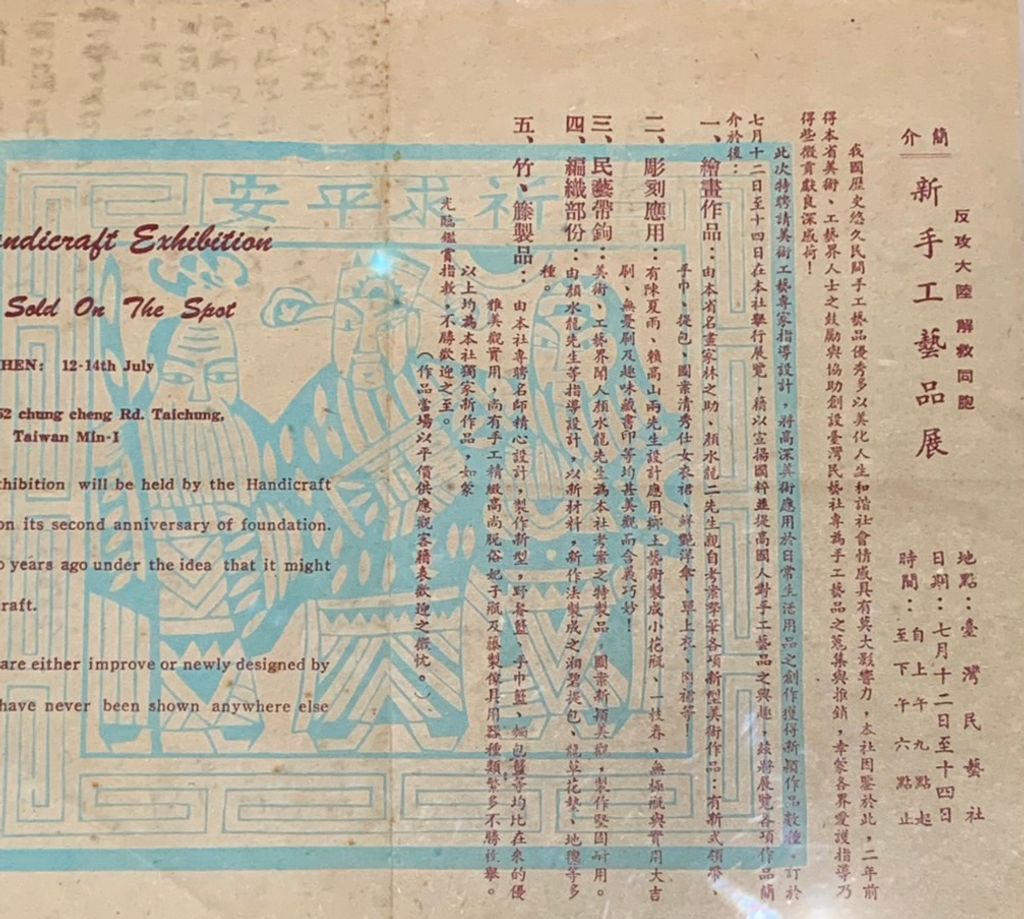 反攻大陸 解救同胞
簡介
新手工藝品展
地點：臺灣民藝社
日期：七月十二日至十四日
時間：自上午九點起
至下午六點止
我國歷史悠久民間手工藝品優秀多以美化人生和諧社會情感具有莫大影響力，本社因鑒於此，二年前
得本省美術、工藝界人士之鼓勵與協助創設臺灣民藝社專為手工藝品之蒐集與推銷，幸蒙各界愛護指導乃
得些微貢獻良深感荷！
此次特聘請美術工藝專家指導設計，將高深美術應用於日常生活用品之創作獲得新穎作品數種，訂於
七月十二日至十四日在本社舉行展覽，藉以宣揚國粹並提高國人對手工藝品之興趣，茲將展覽各項作品簡
介於後：
一、繪畫作品：由本省名畫家林之助、顏水龍二先生親自考案揮筆各項新型美術作品：有新式領帶、
手巾、提包、圖案清秀仕女衣裙、鮮艷洋傘、單上衣、圍裙等！
二、彫刻應用：有陳夏雨、賴高山兩先生設計應用鄉土藝術製成小花瓶、一枝春、無極瓶與實用大吉
刷、無憂刷及趣味藏書印等均甚美觀而含義巧妙！
三、民藝帶鉤：美術、工藝界聞人顏水龍先生為本社考案之特製品，圖案新穎美觀，製作堅固耐用。
四、編織部份：由顏水龍先生等指導設計，以新材料，新作法製成之湘碧提包、龍草花墊、地氈等多
種。
五、竹、籐製品：由本社專聘名師精心設計，製作新型，野餐籃、手巾籃、麵包籃等均比在來的優
雅美觀實用，尚有手工精緻高尚脫俗妃子瓶及藤製傢具用器種類繁多不勝枚舉。
以上均為本社獨家新作品，如蒙
光臨鑑賞指教，不勝歡迎之至。
（作品當場以平價供應觀客藉表歡迎之微忱。）
祈求平安
ndicraft Exhibition
Sold On The Spot
HEN: 12-14th July
52 chung cheng Rd. Taichung,
Taiwan Min-I
xhibition will be held by the Handicraft
on its second anniversary of foundation.
o years ago under the idea that it might
raft.
are either improve or newly designed by
have never been shown anywhere else